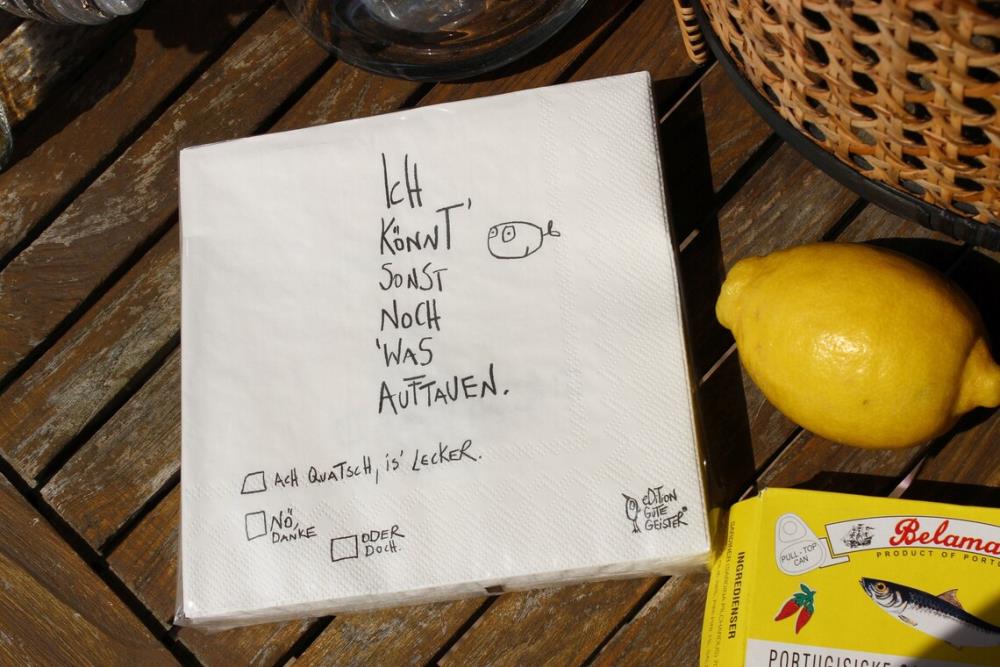 ICH
KÖNNT'
SONST
NOCH
'WAS
AUFTAUEN.
ACH QUATSCH, IS' LECKER.
NÖ,
DANKE
ODER
DOCH.
EDITION
GUTE
GEISTER
PULL-TOP
CAN
Belama
PRODUCT OF PORTU
INGREDIENSER
PORTUGISISKE